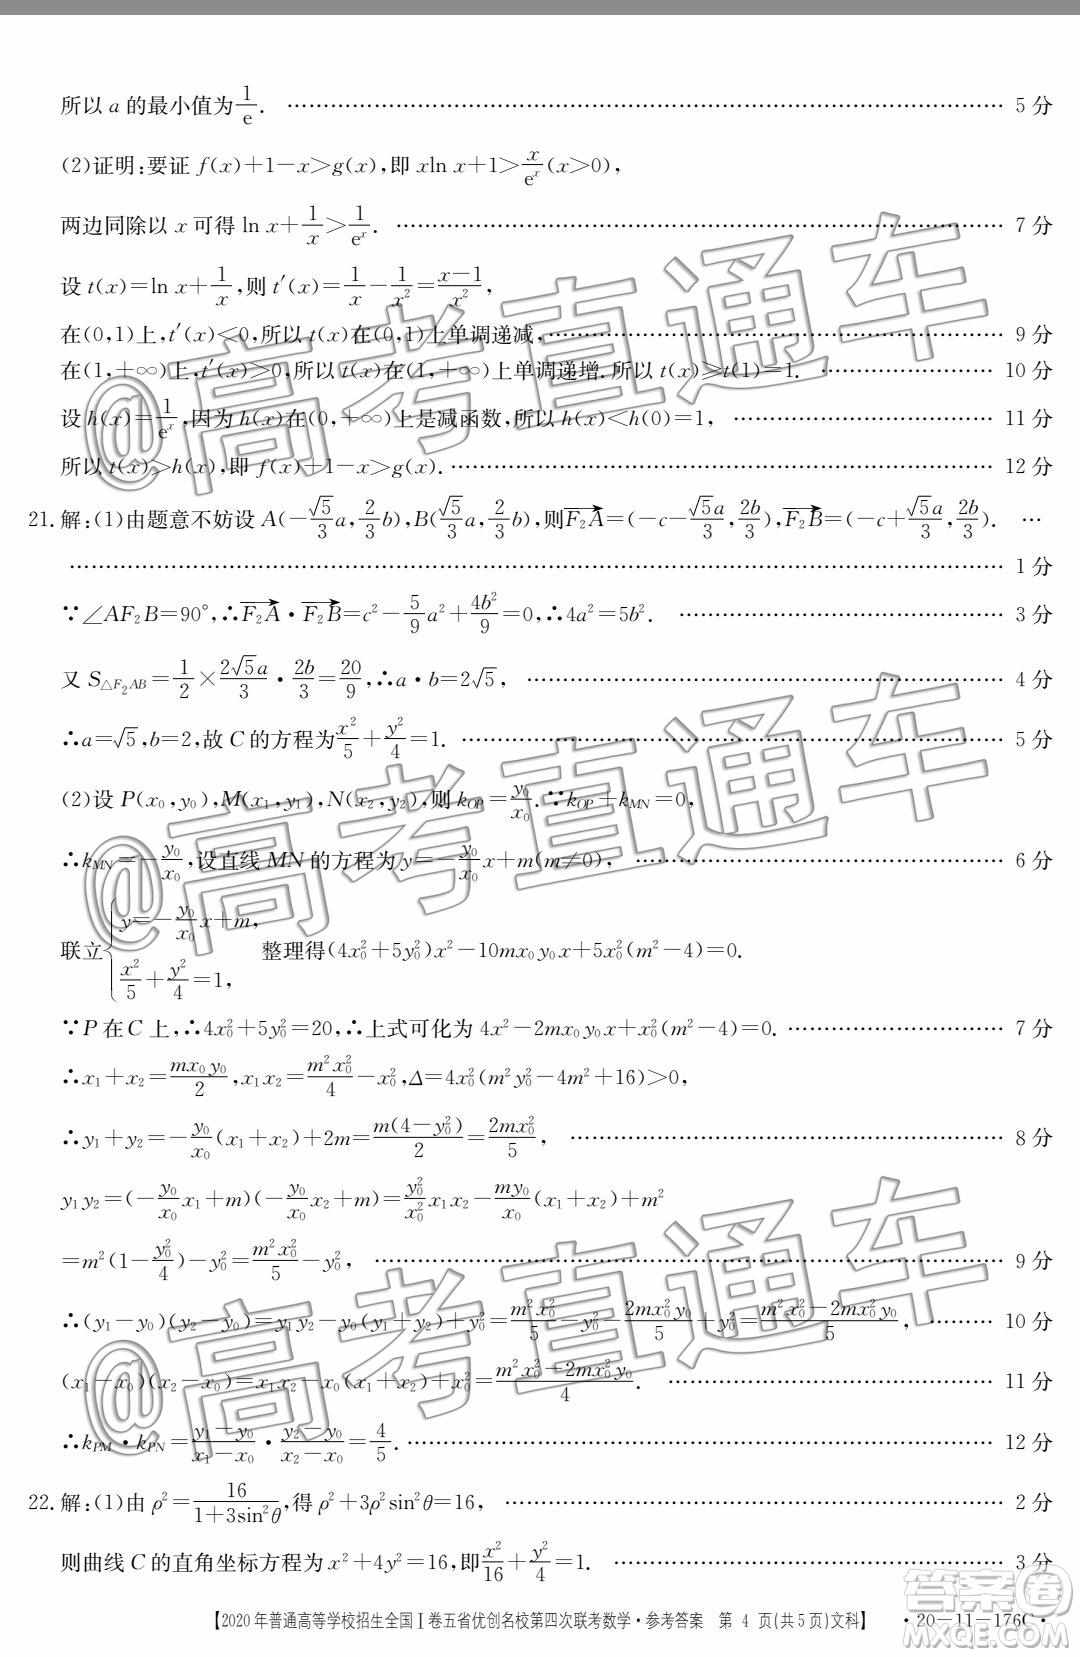 所以 a 的最小值为1/e. …… 5 分
(2)证明:要证 f(x)+1-x>g(x),即 xln x+1>x/eˣ(x>0),
两边同除以 x 可得 ln x+1/x>1/eˣ. …… 7 分
设 t(x)=ln x+1/x,则 t′(x)=1/x-1/x²=(x-1)/x²,
在(0,1)上,t′(x)<0,所以 t(x)在(0,1)上单调递减, …… 9 分
在(1,+∞)上,t′(x)>0,所以 t(x)在(1,+∞)上单调递增.所以 t(x)≥t(1)=1. …… 10 分
设 h(x)=1/eˣ,因为 h(x)在(0,+∞)上是减函数,所以 h(x)<h(0)=1, …… 11 分
所以 t(x)>h(x),即 f(x)+1-x>g(x). …… 12 分
21.解:(1)由题意不妨设 A(-√5/3 a,2/3 b),B(√5/3 a,2/3 b),则F₂A→=(-c-√5a/3,2b/3),F₂B→=(-c+√5a/3,2b/3). …
…… 1 分
∵∠AF₂B=90°,∴F₂A→·F₂B→=c²-5/9 a²+4b²/9=0,∴4a²=5b². …… 3 分
又 S△F₂AB=1/2×2√5a/3·2b/3=20/9,∴a·b=2√5, …… 4 分
∴a=√5,b=2,故 C 的方程为x²/5+y²/4=1. …… 5 分
(2)设 P(x₀,y₀),M(x₁,y₁),N(x₂,y₂),则 k_OP=y₀/x₀.∵k_OP+k_MN=0,
∴k_MN=-y₀/x₀,设直线 MN 的方程为 y=-y₀/x₀ x+m(m≠0), …… 6 分
联立{y=-y₀/x₀ x+m, x²/5+y²/4=1, 整理得(4x₀²+5y₀²)x²-10mx₀y₀x+5x₀²(m²-4)=0.
∵P 在 C 上,∴4x₀²+5y₀²=20,∴上式可化为 4x²-2mx₀y₀x+x₀²(m²-4)=0. …… 7 分
∴x₁+x₂=mx₀y₀/2,x₁x₂=m²x₀²/4-x₀²,Δ=4x₀²(m²y₀²-4m²+16)>0,
∴y₁+y₂=-y₀/x₀(x₁+x₂)+2m=m(4-y₀²)/2=2mx₀²/5, …… 8 分
y₁y₂=(-y₀/x₀ x₁+m)(-y₀/x₀ x₂+m)=y₀²/x₀² x₁x₂-my₀/x₀(x₁+x₂)+m²
=m²(1-y₀²/4)-y₀²=m²x₀²/5-y₀², …… 9 分
∴(y₁-y₀)(y₂-y₀)=y₁y₂-y₀(y₁+y₂)+y₀²=m²x₀²/5-y₀²-2mx₀²y₀/5+y₀²=(m²x₀²-2mx₀²y₀)/5, …… 10 分
(x₁-x₀)(x₂-x₀)=x₁x₂-x₀(x₁+x₂)+x₀²=(m²x₀²-2mx₀²y₀)/4. …… 11 分
∴k_PM·k_PN=(y₁-y₀)/(x₁-x₀)·(y₂-y₀)/(x₂-x₀)=4/5. …… 12 分
22.解:(1)由 ρ²=16/(1+3sin²θ),得 ρ²+3ρ²sin²θ=16, …… 2 分
则曲线 C 的直角坐标方程为 x²+4y²=16,即x²/16+y²/4=1. …… 3 分
【2020 年普通高等学校招生全国Ⅰ卷五省优创名校第四次联考数学·参考答案 第 4 页(共 5 页)文科】 ·20-11-176C·
@高考直通车
@高考直通车
@高考直通车
答案圈
MXQE.COM